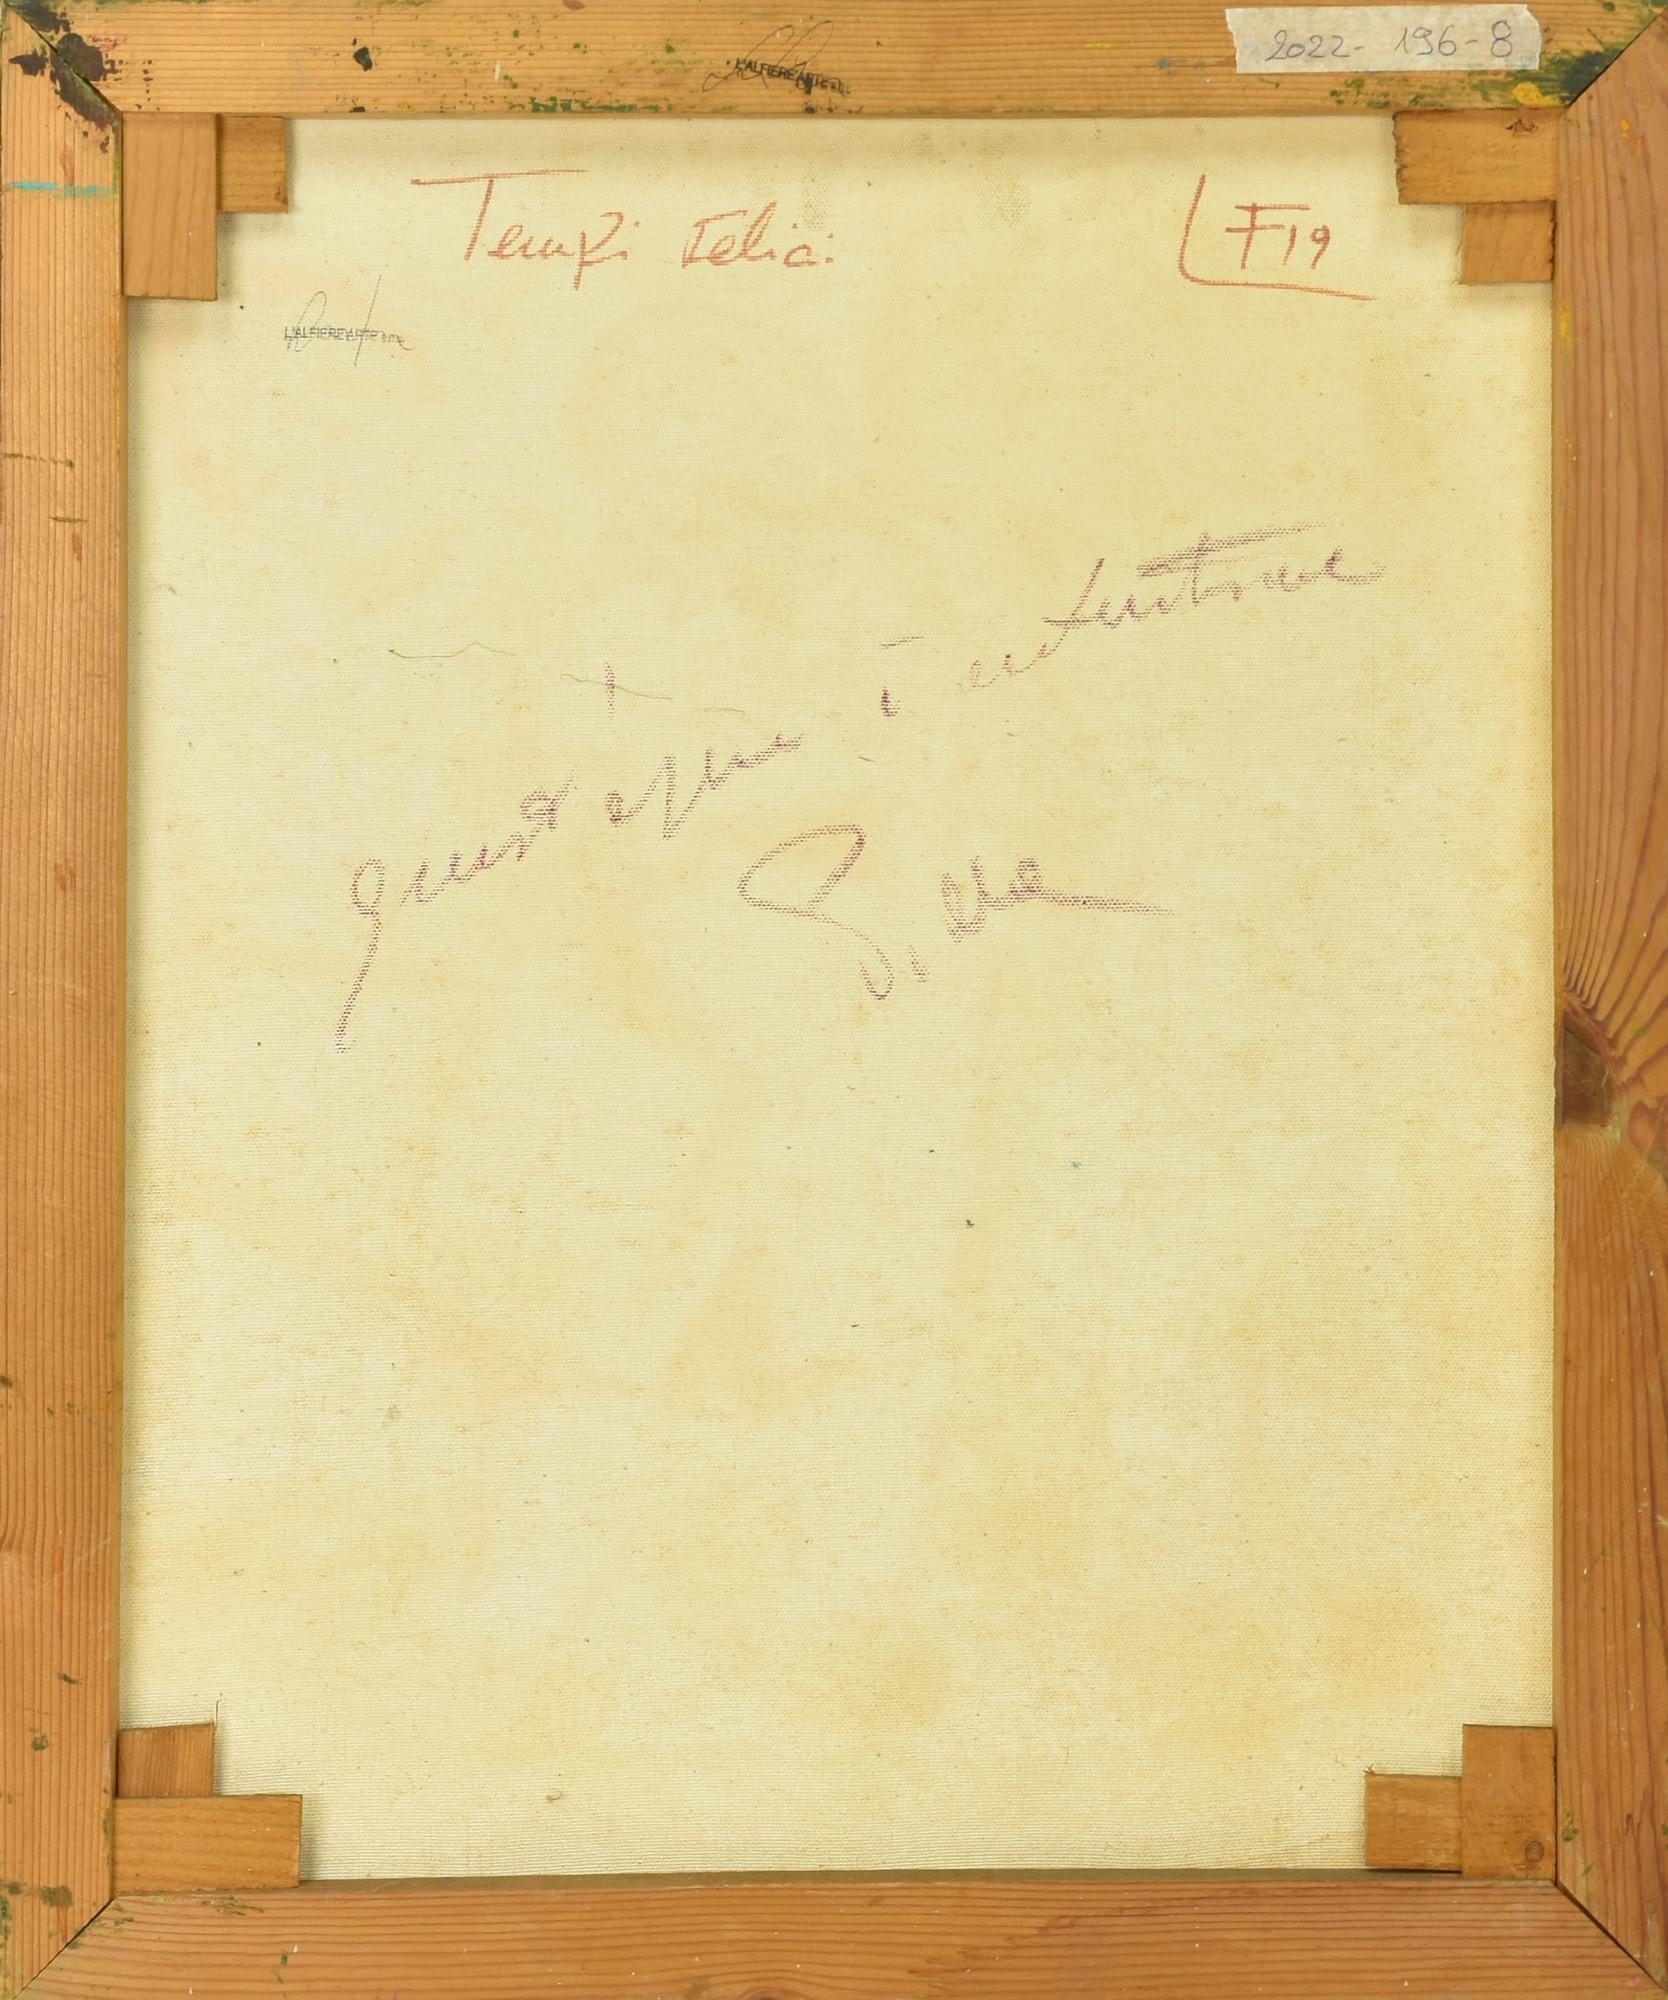 2022-196-8
L'ALFIERE ARTE
Tempi Felici
F19
L'ALFIERE ARTE
questa opera è autentica